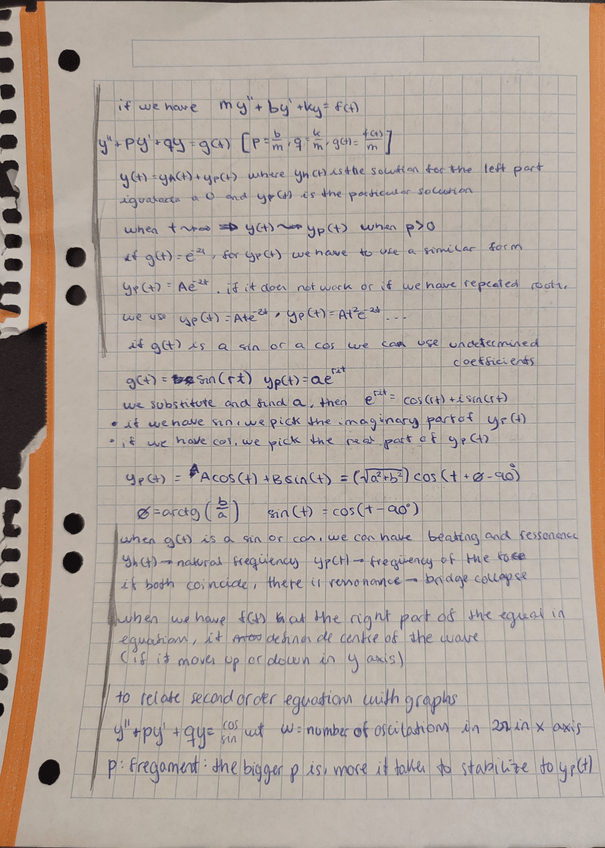 if we have my'' + by' + ky = f(t)
y'' + py' + qy = g(t) [p = b/m, q = k/m, g(t) = f(t)/m]
y(t) = yh(t) + yp(t) where yh(t) is the solution for the left part
a 0 and yp(t) is the particular solution
when t → ∞ ⇒ y(t) → yp(t) when p>0
if g(t) = e^-2t, for yp(t) we have to use a similar form
yp(t) = Ae^-2t. if it does not work or if we have repeated roots,
we use yp(t) = Ate^-2t, yp(t) = At²e^-2t ...
if g(t) is a sin or a cos we can use undetermined
coefficients
g(t) = sin(rt) yp(t) = ae^rit
we substitute and find a, then e^rit = cos(rt) + i sin(rt)
• if we have sin, we pick the imaginary part of yp(t)
• if we have cos, we pick the real part of yp(t)
yp(t) = A cos(t) + B sin(t) = (√a²+b²) cos(t + ø - 90°)
ø = arctg (b/a) sin(t) = cos(t - 90°)
when g(t) is a sin or con, we can have beating and ressonance
yh(t) → natural freqüency yp(t) → freqüency of the force
if both coincide, there is ressonance → bridge collapse
when we have f(t) at the right part of the equal in
equation, it defineh de centre of the wave
(if it moves up or down in y axis)
to relate second order equations with graphs
y'' + py' + qy = cos/sin wt w = number of oscilations in 2π in x axis
p: fregament: the bigger p is, more it takes to stabilize to yp(t)